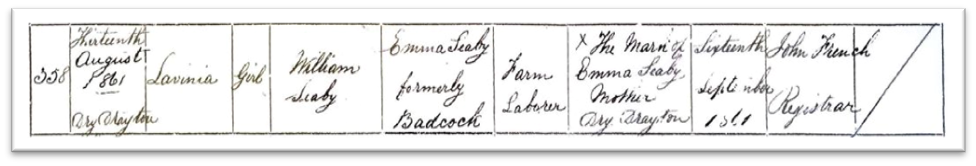 358
Thirteenth
August
1861
Dry Drayton
Lavinia
Girl
William
Seaby
Emma Seaby
formerly
Badcock
Farm
Laborer
X The Mark of
Emma Seaby
Mother
Dry Drayton
Sixteenth
September
1861
John French
Registrar